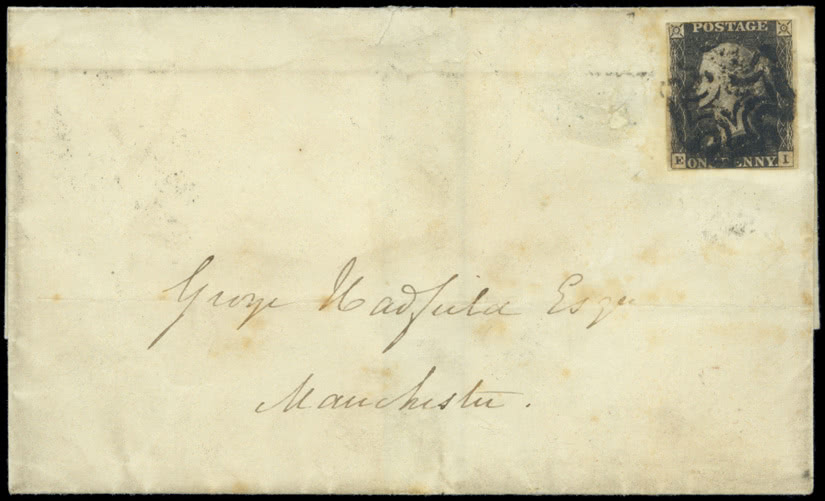 POSTAGE
E ONE PENNY I
George Hadfield Esqr
Manchester.